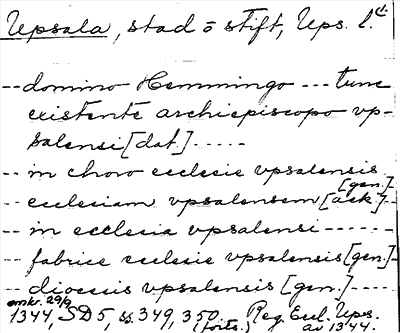 Upsala, stad o stift, Ups. l.
-- domino Hemmingo --- tunc
existente archiepiscopo vp-
salensi [dat.] -----
-- in choro ecclesie vpsalensis [gen.]-
-- ecclesiam vpsalensem [ack.]--
-- in ecclesia vpsalensi ------
-- fabrice ecclesie vpsalensis [gen.]-
-- diocesis vpsalensis [gen.] ----
omkr. 29/9 1344, SD 5, ss. 349, 350. Reg. Eccl. Ups.
(forts.) av 1344.